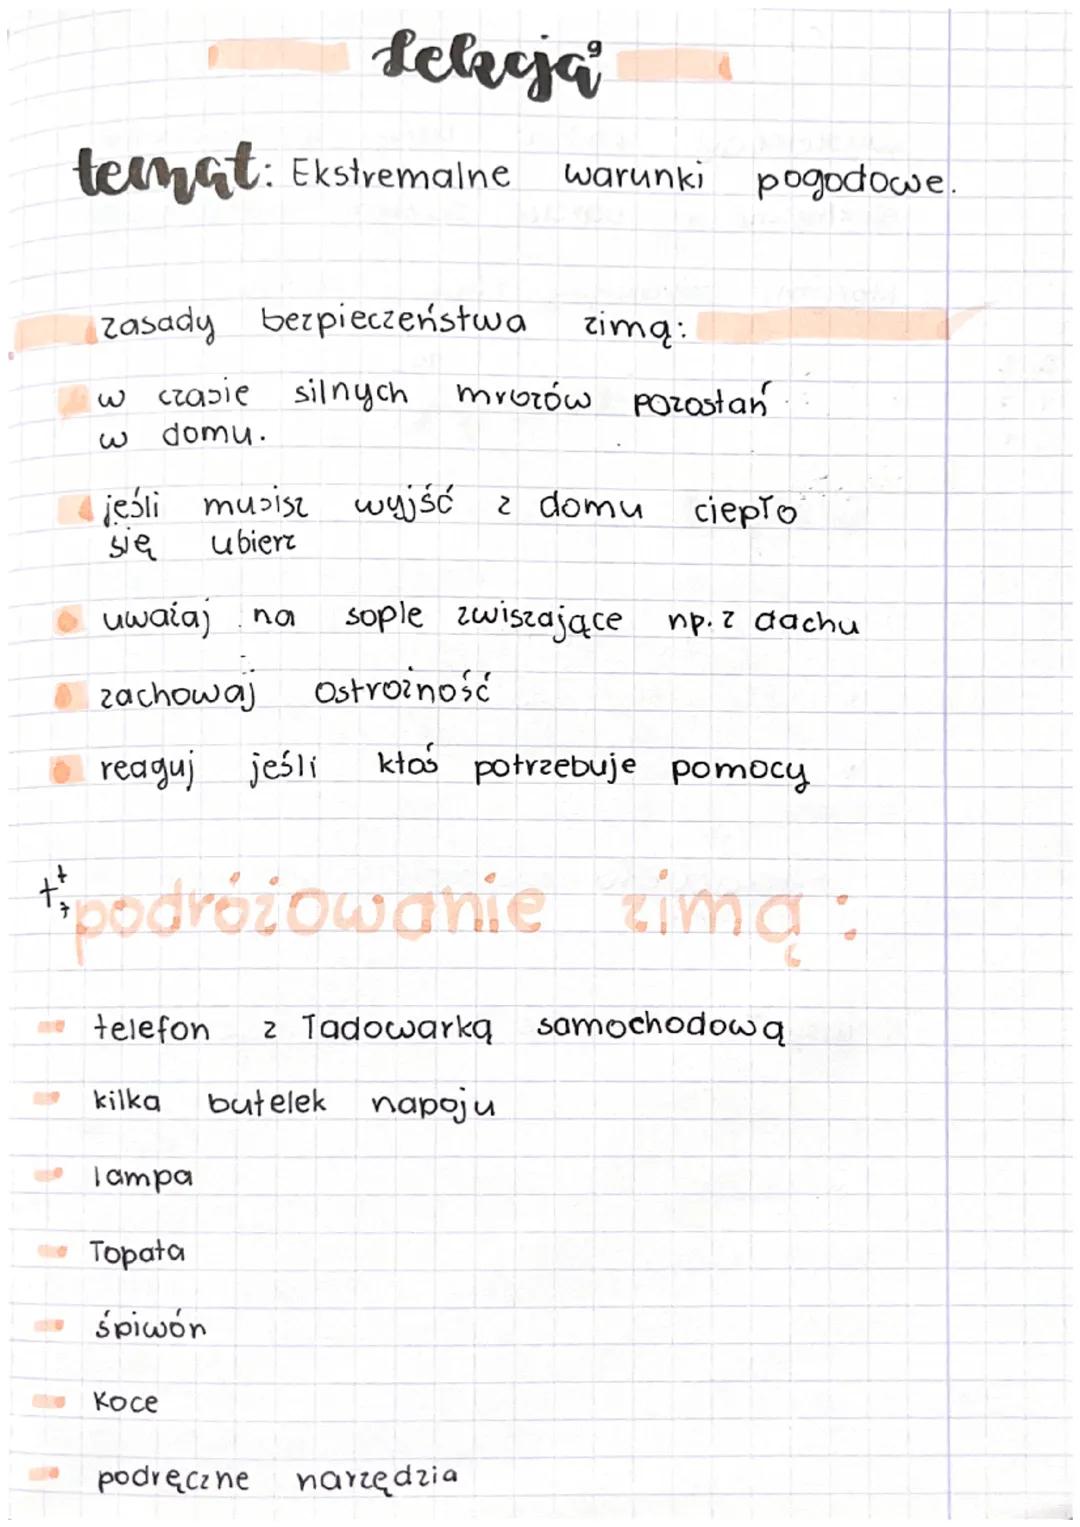 Lekcja 9
temat: Ekstremalne warunki pogodowe.
zasady bezpieczeństwa zimą:
w czasie silnych mrozów pozostań
w domu.
jeśli musisz wyjść z domu ciepło
się ubierz
uważaj na sople zwiszające np. z dachu
zachowaj ostrożność
reaguj jeśli ktoś potrzebuje pomocy
podróżowanie zimą:
telefon z ładowarką samochodową
kilka butelek napoju
lampa
łopata
śpiwón
koce
podręczne narzędzia